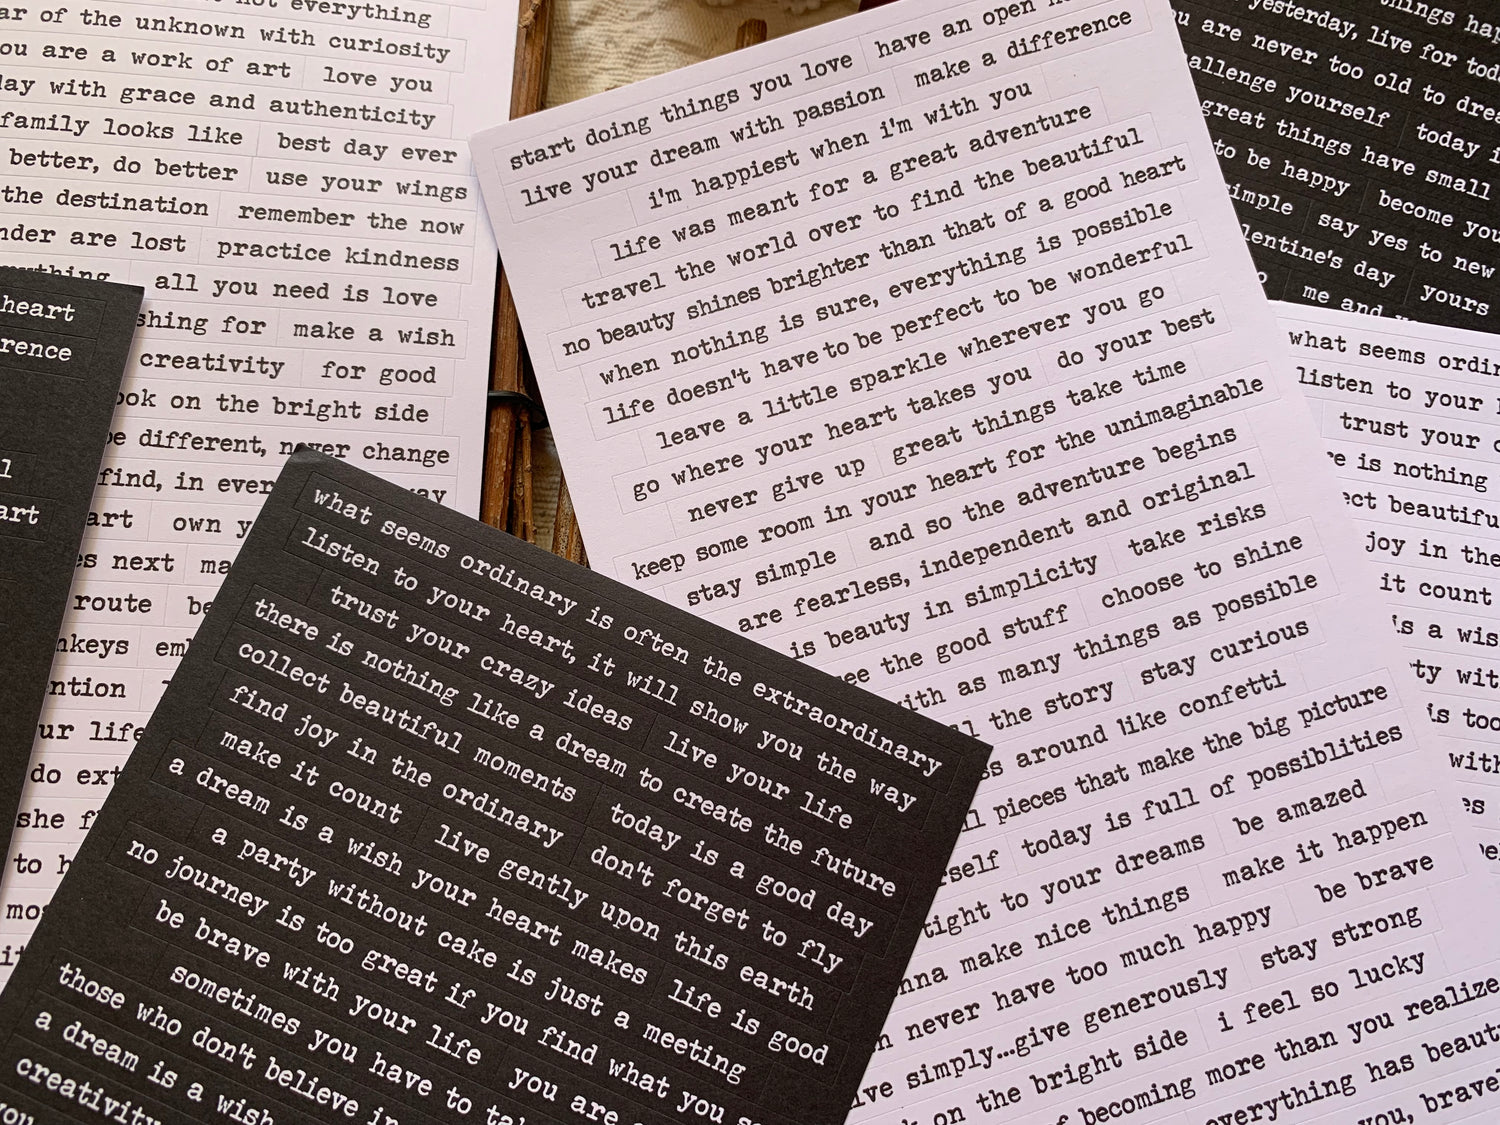 not everything
ar of the unknown with curiosity
ou are a work of art love you
day with grace and authenticity
family looks like best day ever
better, do better use your wings
the destination remember the now
nder are lost practice kindness
all you need is love
shing for make a wish
creativity for good
ook on the bright side
be different, never change
find, in ever
art own y
es next ma
route be
nkeys em
ention
ur life
do ext
she f
to h
mo
it
heart
rence
l
art
start doing things you love have an open
live your dream with passion make a difference
i'm happiest when i'm with you
life was meant for a great adventure
travel the world over to find the beautiful
no beauty shines brighter than that of a good heart
when nothing is sure, everything is possible
life doesn't have to be perfect to be wonderful
leave a little sparkle wherever you go
go where your heart takes you do your best
never give up great things take time
keep some room in your heart for the unimaginable
stay simple and so the adventure begins
are fearless, independent and original
is beauty in simplicity take risks
ee the good stuff choose to shine
with as many things as possible
l the story stay curious
ss around like confetti
ll pieces that make the big picture
rself today is full of possiblities
tight to your dreams be amazed
nna make nice things make it happen
n never have too much happy be brave
ve simply...give generously stay strong
k on the bright side i feel so lucky
f becoming more than you realize
everything has beaut
you, brave
what seems ordinary is often the extraordinary
listen to your heart, it will show you the way
trust your crazy ideas live your life
there is nothing like a dream to create the future
collect beautiful moments today is a good day
find joy in the ordinary don't forget to fly
make it count live gently upon this earth
a dream is a wish your heart makes life is good
a party without cake is just a meeting
no journey is too great if you find what you s
be brave with your life you are
sometimes you have to ta
those who don't believe in
a dream is a wish
creativity
you
things hap
yesterday, live for toda
u are never too old to drea
allenge yourself today i
great things have small
to be happy become you
simple say yes to new
lentine's day yours
me and y
what seems ordin
listen to your
trust your c
re is nothing
ect beautifu
joy in the
it count
is a wis
ty wit
is too
with
es